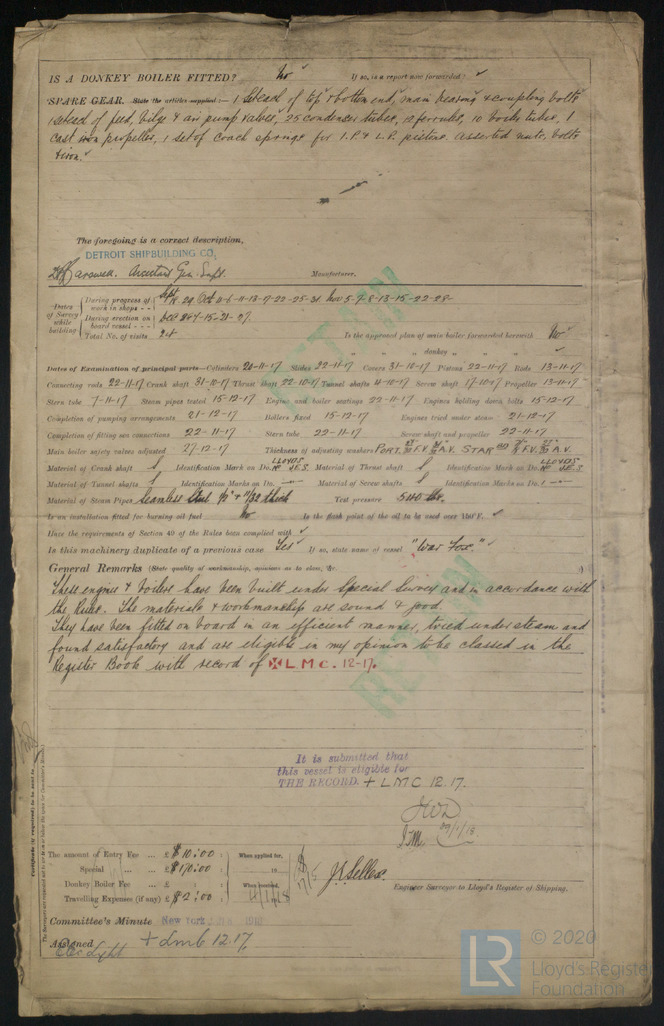 IS A DONKEY BOILER FITTED? No If so, is a report now forwarded? ✓
SPARE GEAR. State the articles supplied:— 1 set each of top & bottom end, main bearing & coupling bolts
1 set each of feed, bilge & air pump valves, 25 condenser tubes, 12 ferrules, 10 boiler tubes, 1
cast iron propeller, 1 set of coach springs for I.P. & L.P. pistons assorted nuts, bolts
& iron.
The foregoing is a correct description,
DETROIT SHIPBUILDING CO,
Gen. Supt. Manufacturer.
Dates of Survey while building
During progress of work in shops -- Sept 18. 29. Oct 11-13-17-22-25-31 Nov 5-7-8-13-15-22-28-
During erection on board vessel --- Dec 15-21-27.
Total No. of visits 24 Is the approved plan of main boiler forwarded herewith No
" " " donkey " " "
Dates of Examination of principal parts—Cylinders 20-11-17 Slides 22-11-17 Covers 31-10-17 Pistons 22-11-17 Rods 13-11-17
Connecting rods 22-11-17 Crank shaft 31-10-17 Thrust shaft 22-10-17 Tunnel shafts 4-10-17 Screw shaft 17-10-17 Propeller 13-10-17
Stern tube 7-11-17 Steam pipes tested 15-12-17 Engine and boiler seatings 22-11-17 Engines holding down bolts 15-12-17
Completion of pumping arrangements 21-12-17 Boilers fixed 15-12-17 Engines tried under steam 21-12-17
Completion of fitting sea connections 22-11-17 Stern tube 22-11-17 Screw shaft and propeller 22-11-17
Main boiler safety valves adjusted 27-12-17 Thickness of adjusting washers PORT. F.V. A.V. STARBD F.V. A.V.
Material of Crank shaft S Identification Mark on Do. LLOYDS No J.E.S. Material of Thrust shaft S Identification Mark on Do. LLOYDS No J.E.S
Material of Tunnel shafts S Identification Marks on Do. — Material of Screw shafts S Identification Marks on Do. —
Material of Steam Pipes Seamless Steel thick Test pressure 540 lbs.
Is an installation fitted for burning oil fuel No Is the flash point of the oil to be used over 150°F. ✓
Have the requirements of Section 49 of the Rules been complied with ✓
Is this machinery duplicate of a previous case Yes If so, state name of vessel "War Fox."
General Remarks (State quality of workmanship, opinions as to class, &c.
These engines & boilers have been built under Special Survey and in accordance with
the Rules. The materials & workmanship are sound & good.
They have been fitted on board in an efficient manner, tried under steam and
found satisfactory and are eligible in my opinion to be classed in the
Register Book with record of ✠ L M C. 12-17.
It is submitted that
this vessel is eligible for
THE RECORD. + LMC 12.17.
JWD
The amount of Entry Fee ... £ $10:00 : When applied for,
Special ... £ $170:00 :
Donkey Boiler Fee ... £ : : When received,
Travelling Expenses (if any) £ $2:00
Engineer Surveyor to Lloyd's Register of Shipping.
Committee's Minute New York
Assigned + LMC 12.17.
Elec Light
© 2020
Lloyd's Register
Foundation
LR